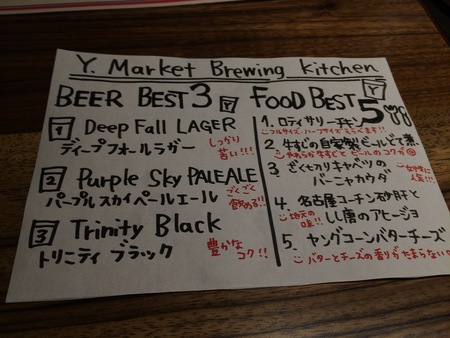 Y. Market Brewing kitchen
BEER BEST 3
1 Deep Fall LAGER
ディープフォールラガー
しっかり
苦い!!!
2 Purple Sky PALE ALE
パープルスカイペールエール
ごくごく
飲める!!
3 Trinity Black
トリニティ ブラック
豊かな
コク!!
FOOD BEST 5
1. ロティサリーチキン
フルサイズ・ハーフサイズえらべます!!
2. 牛すじの自家製ビールどて煮
やわらか牛すじとビールのコクが
3. ざく切りキャベツの
バーニャカウダ
女性に
人気!!!
4. 名古屋コーチン砂肝と
しし唐のアヒージョ
地元の
味!!
5. ヤングコーンバターチーズ
バターとチーズの香りがたまらない